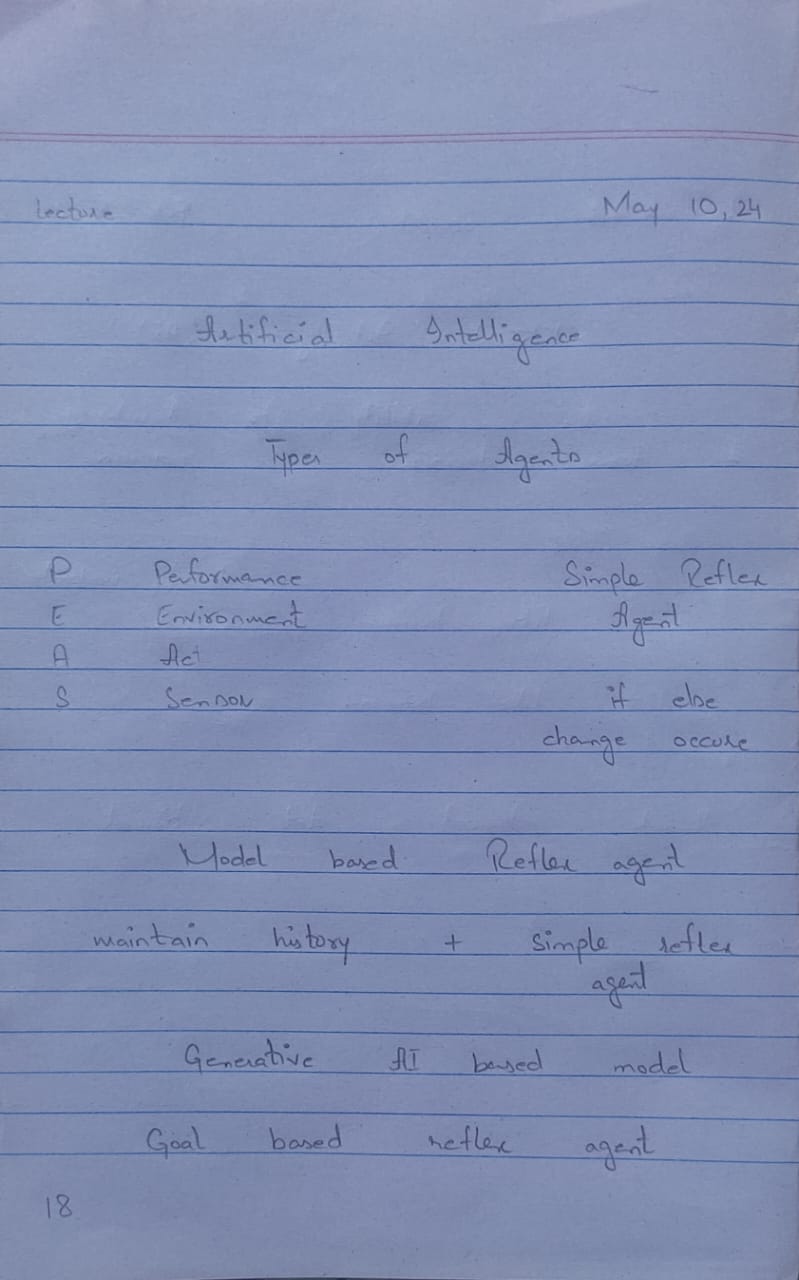 Lecture May 10, 24
Artificial Intelligence
Types of Agents
P Performance Simple Reflex
E Environment Agent
A Act
S Sensor if else
change occure
Model based Reflex agent
maintain history + simple reflex
agent
Generative AI based model
Goal based reflex agent
18